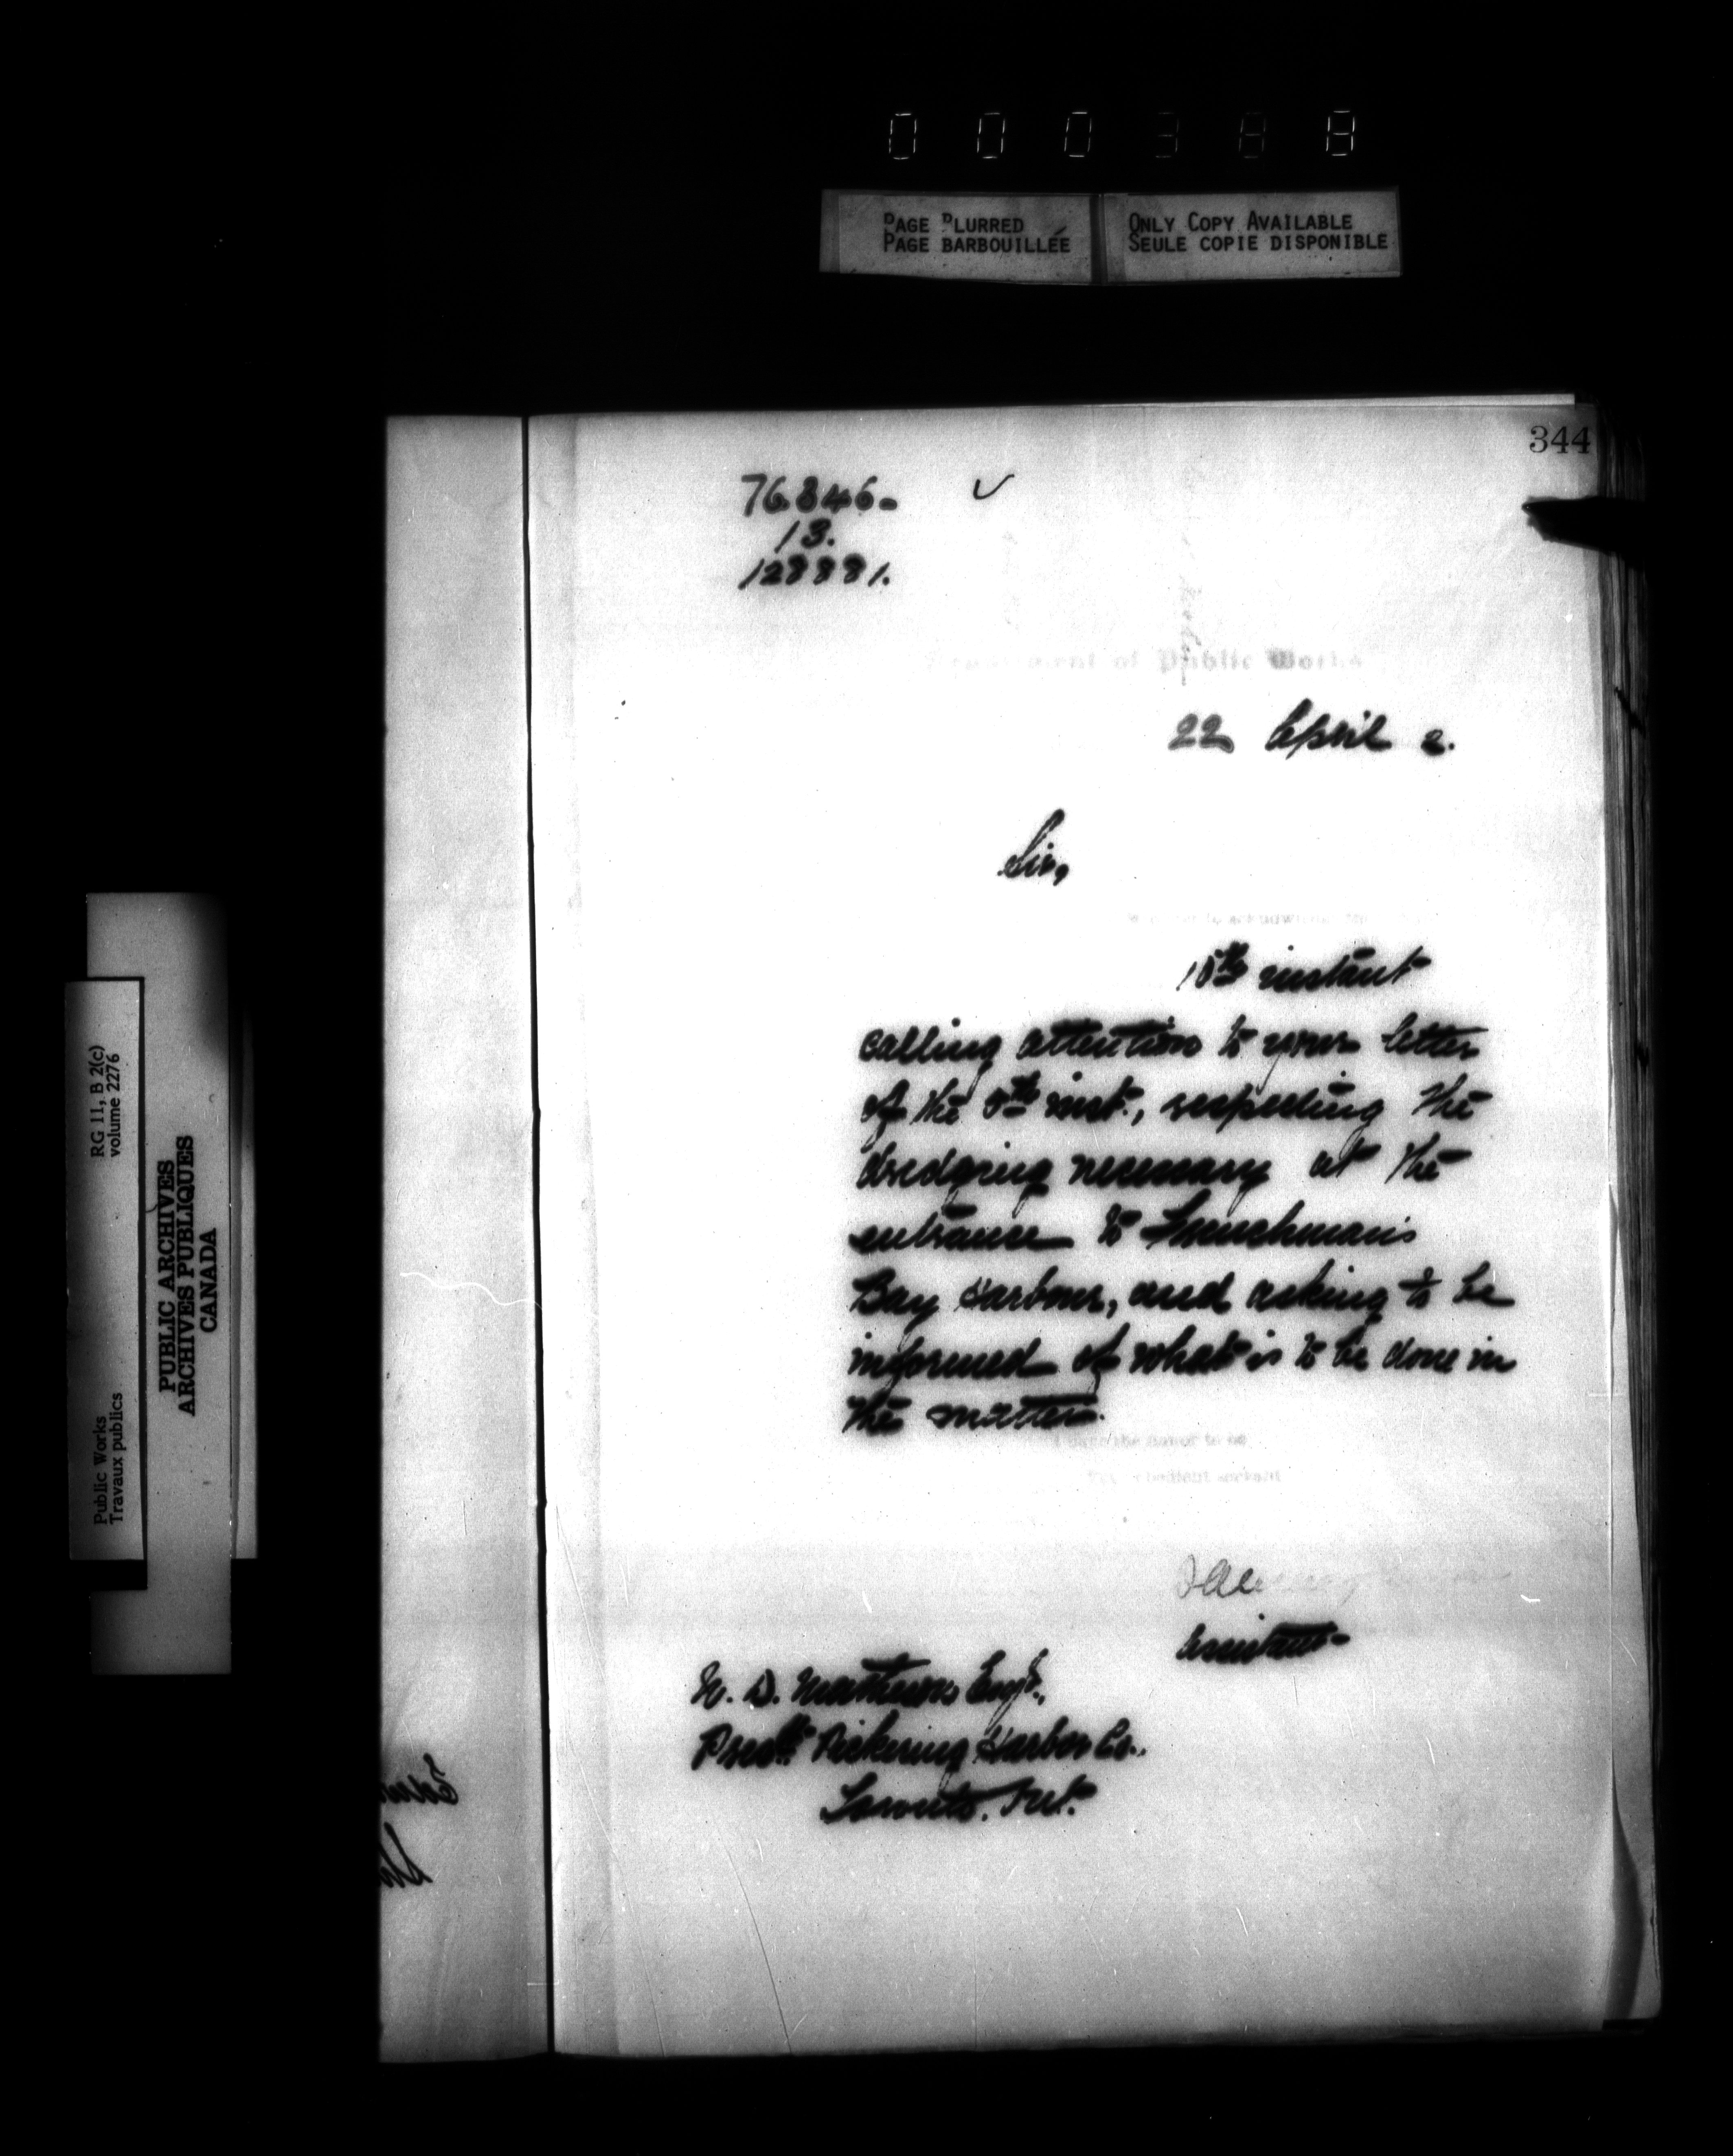 000388
PAGE BLURRED
PAGE BARBOUILLÉE
ONLY COPY AVAILABLE
SEULE COPIE DISPONIBLE
344
76846.
13.
128881.
Department of Public Works
22 April 2.
Sir,
to acknowledge
18th instant
calling attention to your letter
of the 5th inst., respecting the
dredging necessary at the
entrance to Frenchman's
Bay Harbour, and asking to be
informed of what is to be done in
the matter.
I have the honor to be
obedient servant
Assistant
D. Matthews Esqr.,
Presdt Pickering Harbor Co.,
Toronto. Ont.
RG 11, B 2(c)
volume 2276
Public Works
Travaux publics
PUBLIC ARCHIVES
ARCHIVES PUBLIQUES
CANADA